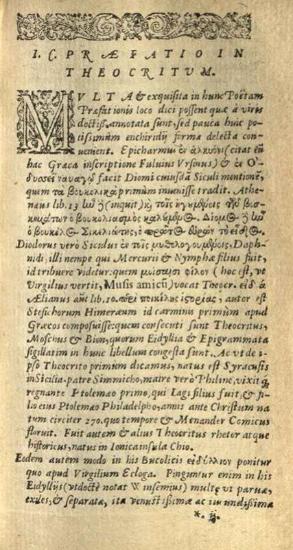 I. C. PRÆFATIO IN
THEOCRITUM.
MVLTA & exquisita in hunc Poëtam
Præfationis loco dici possent quæ à viris
doctiss. annotata sunt: sed pauca huic po-
tissimùm enchiridij forma delecta con-
uenient. Epicharmus ἐν ἀλκυόνι (citat ex
hac Græca inscriptione Fuluius Vrsinus) & ἐν Ὀ-
δυσσεῖ ναυαγῷ facit Diomi cuiusdã Siculi mentionē,
quem τὰ βουκολικὰ primùm inuenisse tradit. Athe-
næus lib. 13 (inquit)
ὁ βουκολιασμὸς καλούμενος. Δίομος
ὁ βουκόλος Σικελιώτης, ὁ πρῶτος εὑρὼν τὸ εἶδος.
Diodorus verò Siculus ἐν τοῖς μυθολογουμένοις, Daph-
nidi, illi nempe qui Mercurij & Nymphæ filius fuit,
id tribuere videtur: quem μοίσησι φίλον (hoc est, vt
Virgilius vertit, Musis amicũ) vocat Theocr. eid. α
Ælianus aũt lib. 10. περὶ ποικίλης ἱστορίας, autor est
Stesichorum Himeræum id carminis primùm apud
Græcos composuisse: quem consecuti sunt Theocritus,
Moschus & Bion, quorum Eidyllia & Epigrammata
sigillatim in hunc libellum congesta sunt. Ac vt de ip-
so Theocrito primùm dicamus, natus est Syracusis
in Sicilia. patre Simmicho, matre verò Philine, vixit q;
regnante Ptolemæo primo, qui Lagi filius fuit, & fi-
lio eius Ptolemæo Philadelpho, annis ante Christum na
tum circiter 270. quo tempore & Menander Comicus
floruit. Fuit autem & alius Theocritus rhetor atque
historicus, natus in Ionica insula Chio.
Eodem autem modo in his Bucolicis εἰδύλλιον ponitur
quo apud Virgilium Ecloga. Pinguntur enim in his
Eidyllijs (vt doctè notat W insemius) multæ vt paruæ,
exiles, & separatæ, ita venustissimæ ac iucundissimæ